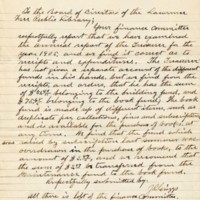 To the Board of Directors of the Lawrence
Free Public Library;
Your finance committee
respectfully report that we have examined
the annual report of the Treasurer for
the year 1905, and we find it correct as to
receipts and expenditures. The Treasurer
has not given a separate amount of the different
funds in his hands, but we find from the
receipts, and orders, that he has the
sum of belonging to the building fund, and
$ belonging to the book fund. The book
fund is made up of different items, such as
duplicate pay collection, fines and subscription
and is available for the purchase of books at
any time. We find that the fund which
was raised by subscription has been
overdrawn in the purchase of books, to the
amount of $ and we recommend that
the sum of $ be transferred from the
Maintenance fund to the book fund.
Respectfully submitted by
J. D. Griggs
All there is left of the finance committee